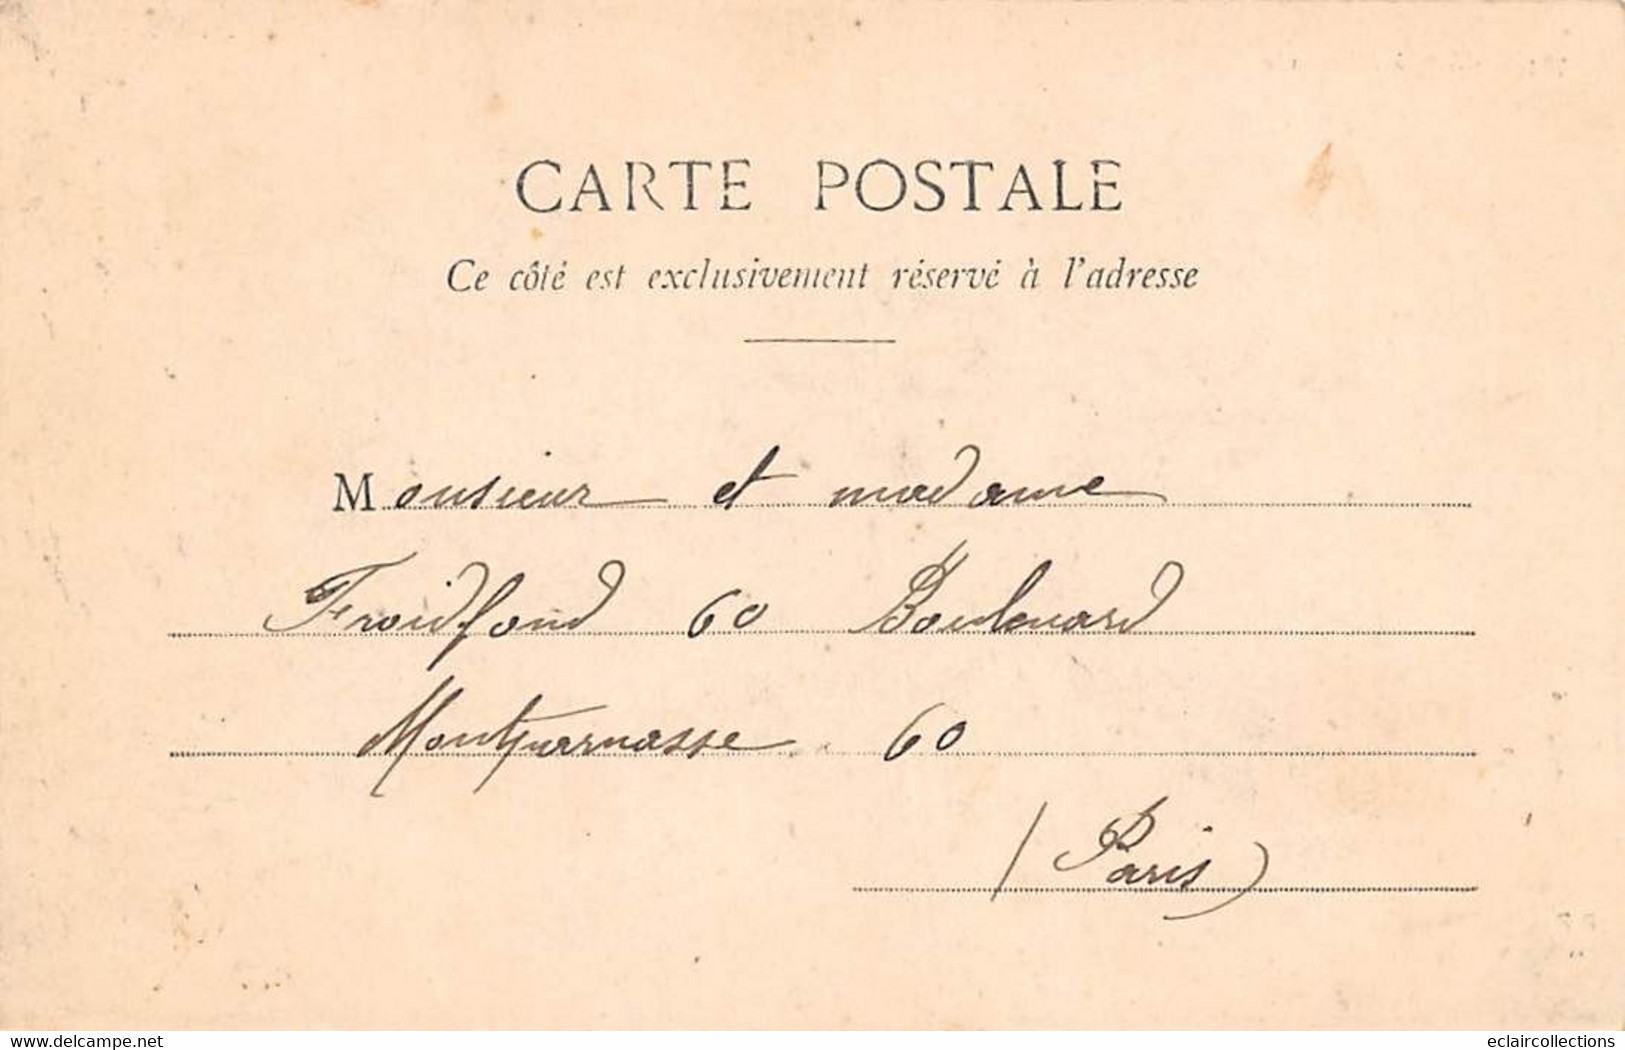 CARTE POSTALE
Ce côté est exclusivement réservé à l'adresse
Monsieur et madame
Froidfond 60 Boulevard
Montparnasse 60
(Paris)
www.delcampe.net
eclaircollections